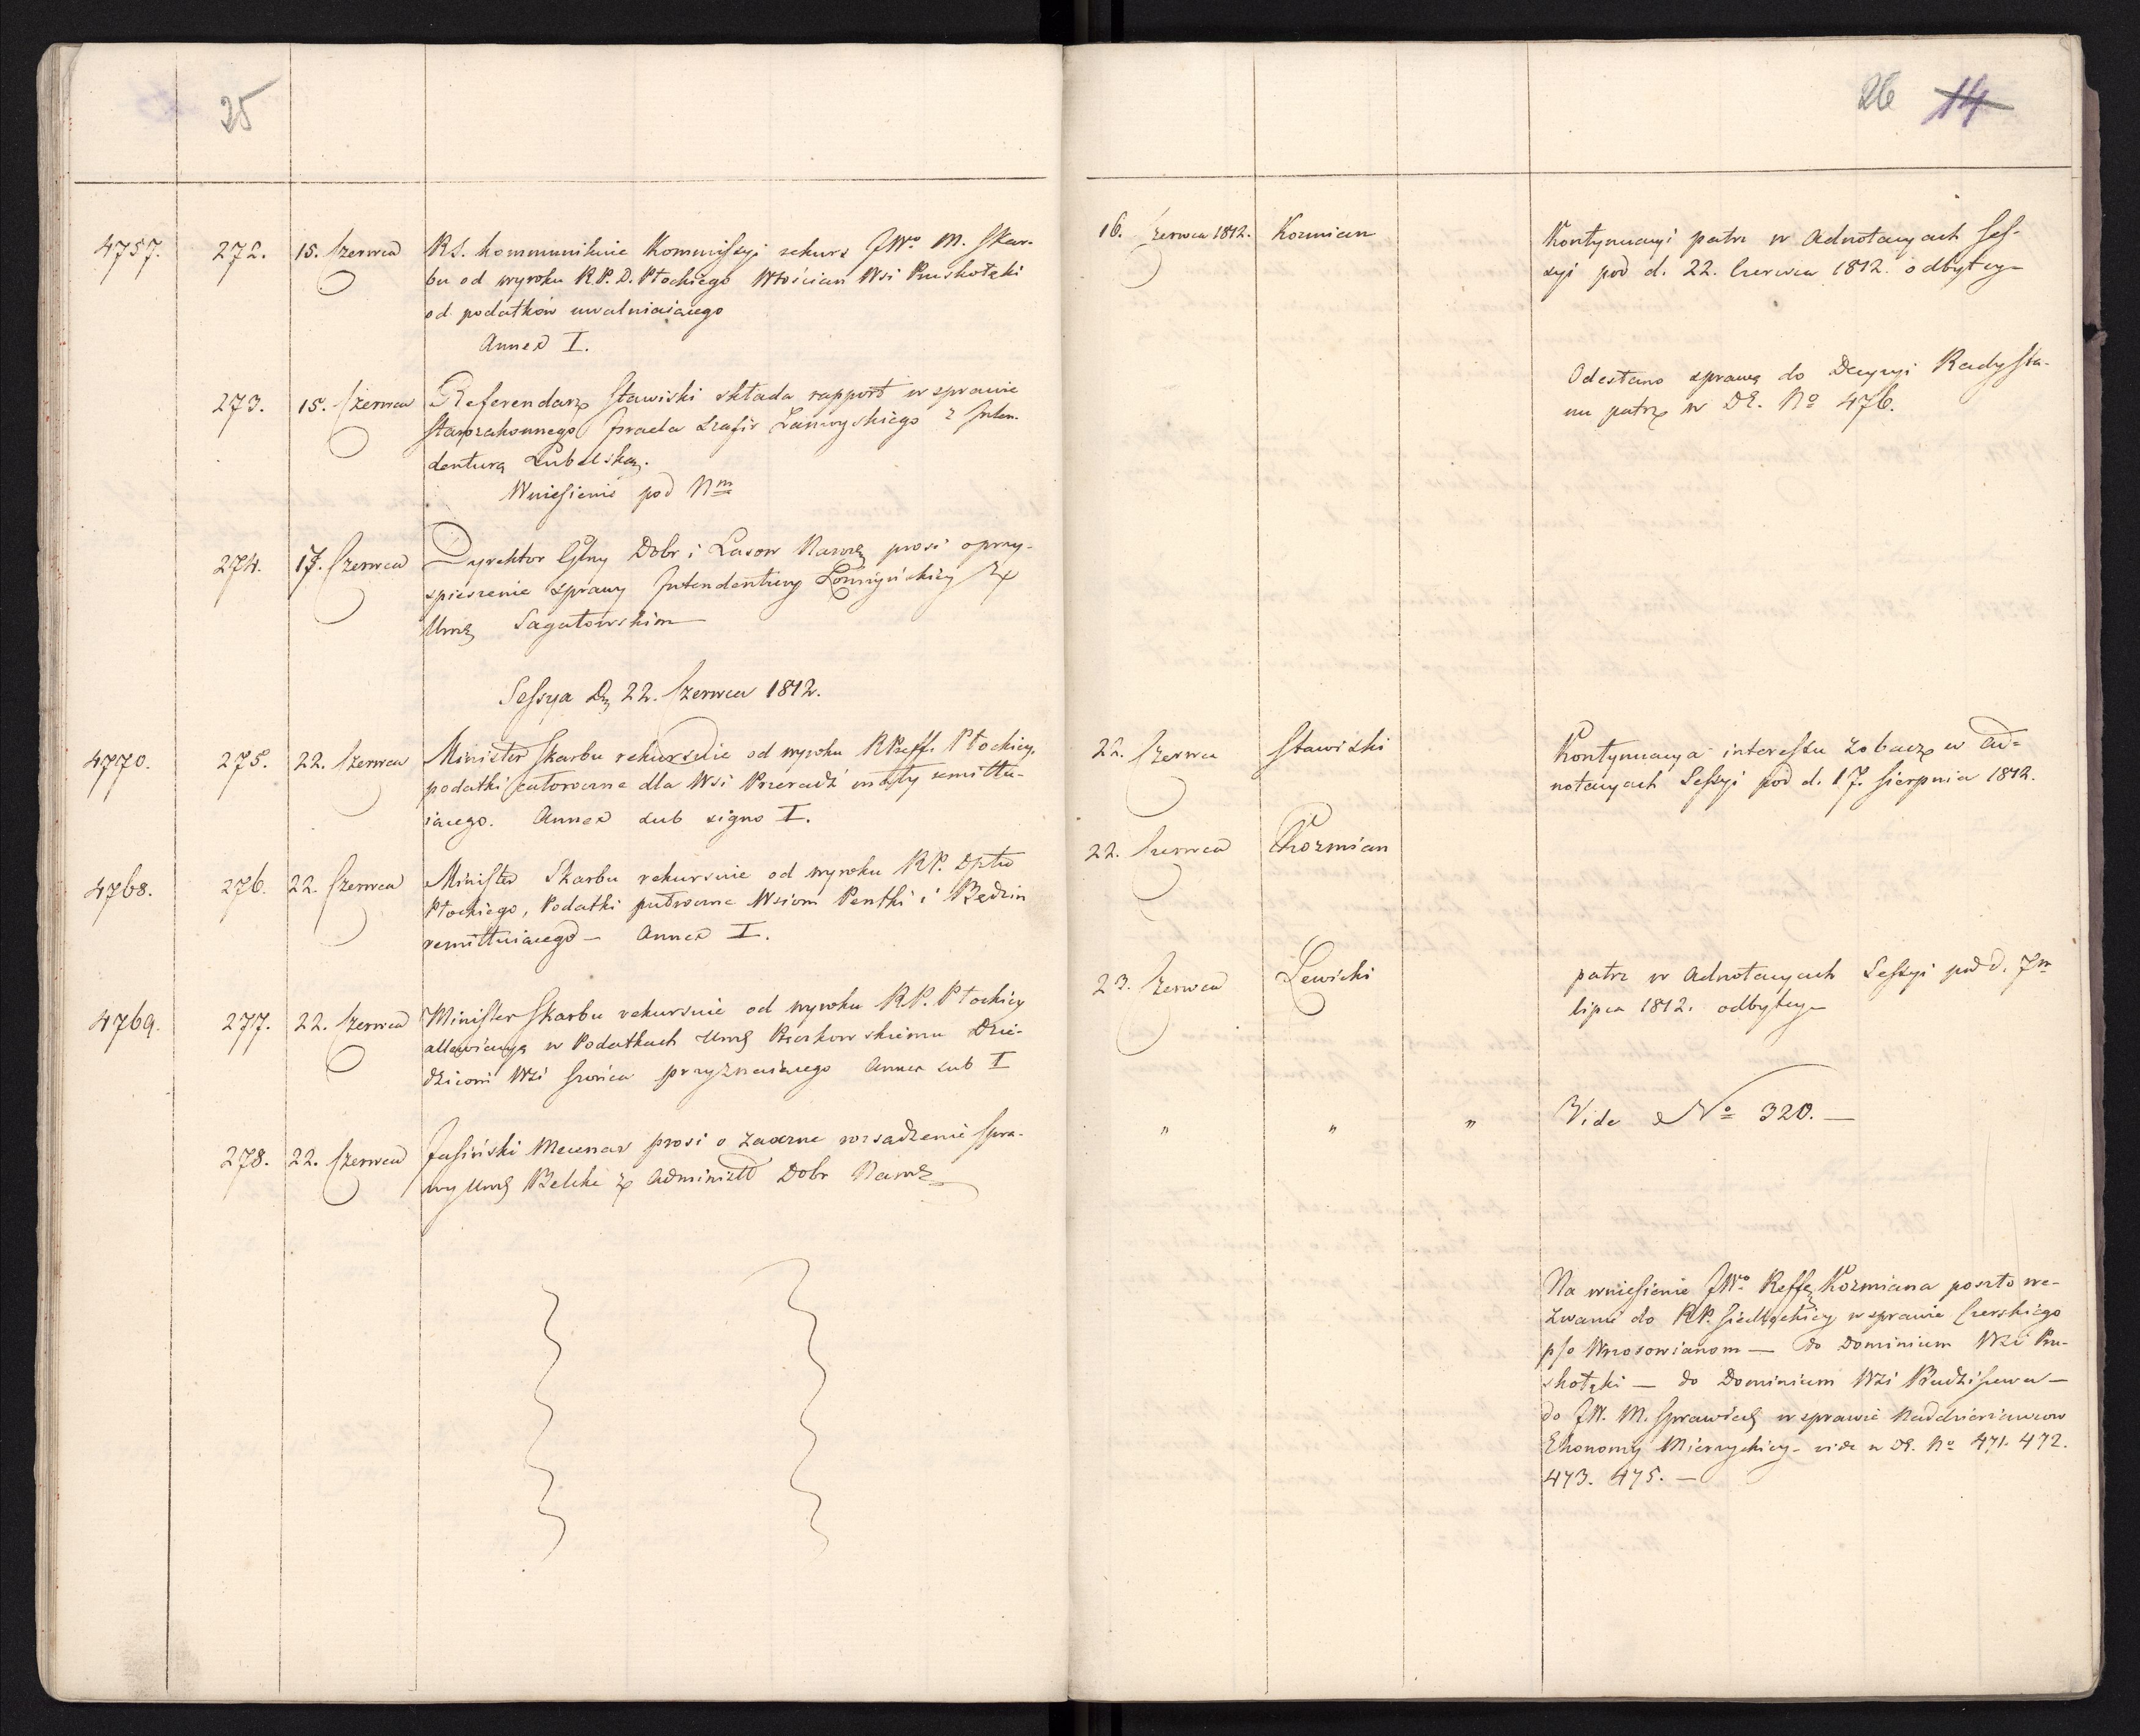 25
4757. 272. 15. Czerwca RS. kommunikuie Kommissyi rekurs JWo M. Skar-
bu od wyroku R.P.D. Płockiego Włościan Wsi Pruskołęki
od podatków uwalniaiącego
Annex I.
273. 15. Czerwca Referendarz Stawiski składa rapport w sprawie
starozakonnego Izraela Szafir z Inten-
denturą Lubelską.
Wniesienie pod Nm
274. 17. Czerwca Dyrektor Glny Dobr i Lasow Narow prosi o przy-
spieszenie sprawy Intendentury Łomżyńskiey z
Ur Sagatowskim
Sessya D. 22. Czerwca 1812.
4770. 275. 22. Czerwca Minister Skarbu rekursuie od wyroku RPreff. Płockiey
podatki dla Wsi Przeradź małey remittu-
iącego. Annex sub signo I.
4768. 276. 22. Czerwca Minister Skarbu rekursuie od wyroku RP. Dptu
Płockiego, Podatki Wsiom Pentki i Będzin
remittuiącego – Annex I.
4769. 277. 22. Czerwca Minister Skarbu rekursuie od wyroku RP. Płockiey
allewiacyą w Podatkach Dzie-
dzicowi Wsi przyznaiącego Annex sub I
278. 22. Czerwca Jasiński Mecenas prosi o rozsądzenie Spra-
wy z Dobr Narow
26 14
16. Czerwca 1812. Kozmian Kontynuacyi patrz w Adnotacyach Ses-
syi pod d. 22. Czerwca 1812. odbytey
Odesłano sprawę do Decyzyi Rady Sta-
nu patrz w DE. No 476.
22. Czerwca Stawiski Kontynuacya interessu zobacz w Ad-
notacyach Sessyi pod d. 17. Sierpnia 1812.
22. Czerwca Kozmian
23. Czerwca Lewicki patrz w Adnotacyach Sessyi pod d. 7m
lipca 1812. odbytey
" " " Vide No 320. —
Na wniesienie JWo Reffe Kozmiana poszło we-
zwanie do RP. Siedleckiey w sprawie Czerskiego
p/o Wrzosowianom — do Dominium Wsi Pru-
skołęki — do Dominium Wsi Budziszewa —
do JW. M. Sprawiedl w sprawie Naddzierżawców
Ekonomy – vide w DE. No 471. 472.
473. 475. —